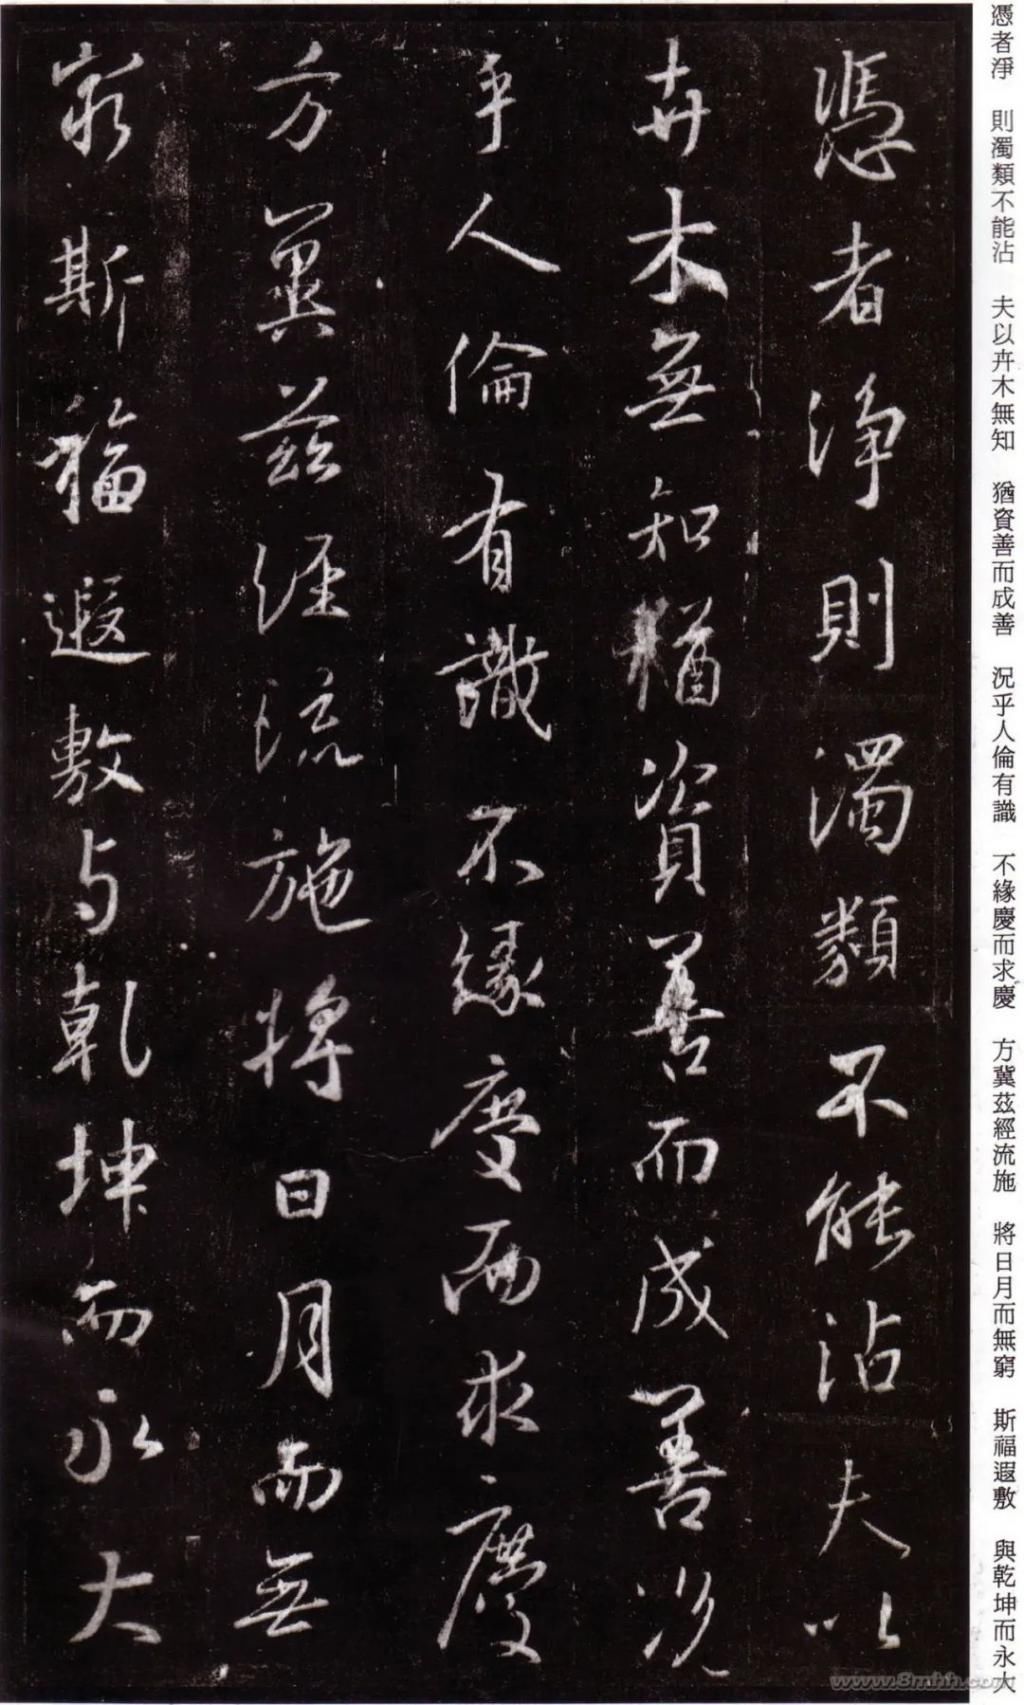 憑者淨 則濁類不能沾 夫以卉木無知 猶資善而成善 況乎人倫有識 不緣慶而求慶 方冀茲經流施 將日月而無窮 斯福遐敷 與乾坤而永大
憑者淨則濁類不能沾夫以
卉木無知猶資善而成善況
乎人倫有識不緣慶而求慶
方冀茲經流施將日月而無
窮斯福遐敷与乾坤而永大
www.8mhh.com